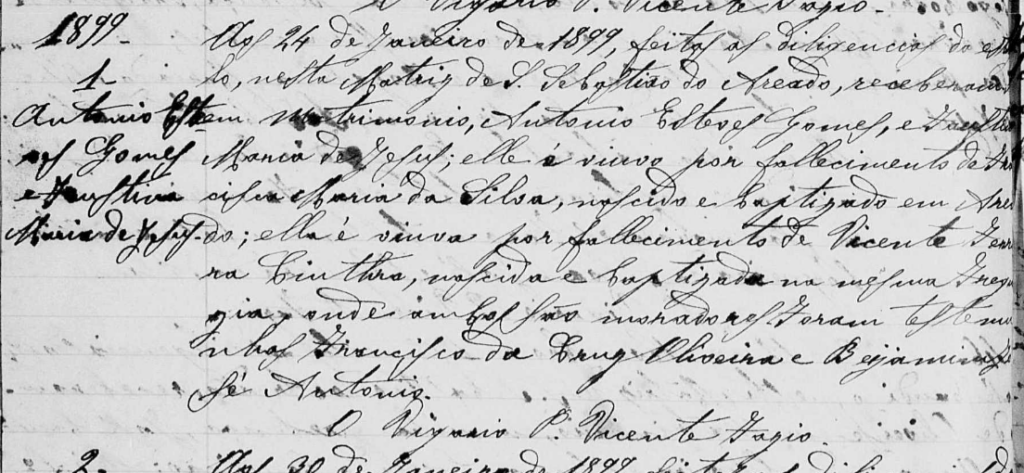 O Vigario P. Vicente Fagio.
1899-
1
Antonio Est
eves Gomes
e Faustina
Maria de Jesus.
Aos 24 de Janeiro de 1899, feitas as diligencias do es
lo, nesta Matriz de S. Sebastião do Areado, receberam
em Matrimonio, Antonio Esteves Gomes, e Faustina
Maria de Jesus; elle é viuvo por fallecimento de Fran
cisca Maria da Silva, nascido e baptizado em Area
do; ella é viuva por fallecimento de Vicente Ferr
ra Cinthra, nascida e baptizada na mesma Fregu
zia, onde ambos são moradores. Foram testemu
nhas Francisco da Cruz Oliveira e Benjamim
sé Antonio.
O Vigario P. Vicente Fagio.
2-
Aos 30 de Janeiro de 1899